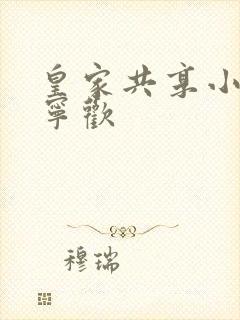 皇家共享小
寧歡
穆瑞